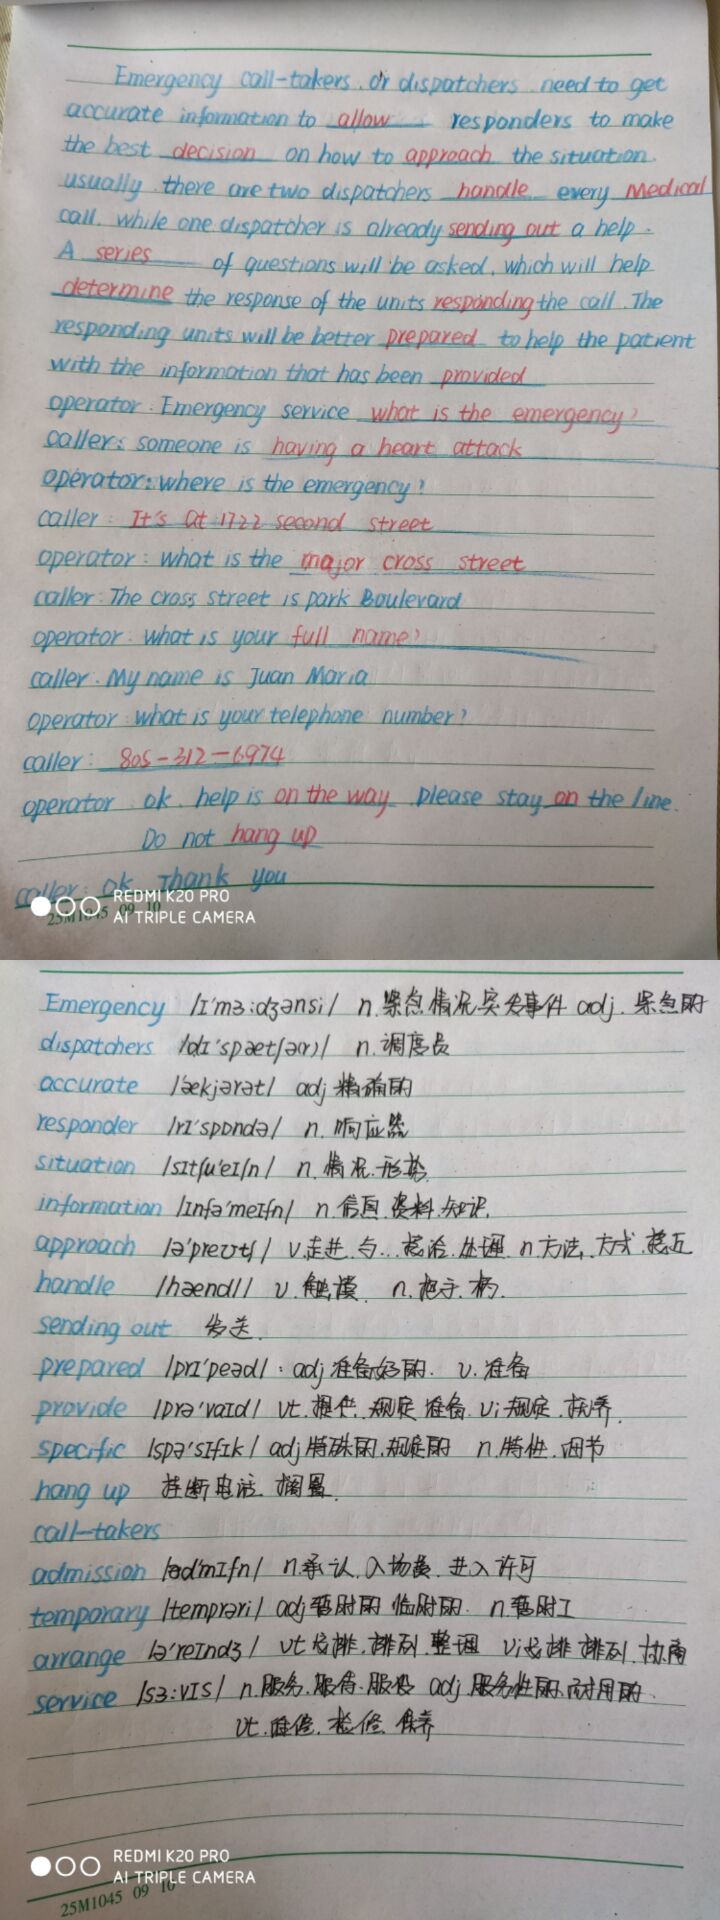 Emergency call-takers or dispatchers need to get
accurate information to allow responders to make
the best decision on how to approach the situation.
usually there are two dispatchers handle every Medical
call. while one dispatcher is already sending out a help.
A series of questions will be asked, which will help
determine the response of the units responding the call. The
responding units will be better prepared to help the patient
with the information that has been provided
operator: Emergency service what is the emergency?
caller: someone is having a heart attack
operator: where is the emergency?
caller: It's at 1722 second street
operator: what is the major cross street
caller: The cross street is park Boulevard
operator: what is your full name?
caller. My name is Juan Maria
operator: what is your telephone number?
caller: 805-312-6974
operator ok. help is on the way. please stay on the line.
Do not hang up
caller: ok Thank you
REDMI K20 PRO
AI TRIPLE CAMERA
25M1045 09 10
Emergency /ɪ'mɜ:dʒənsi/ n.紧急情况.突发事件 adj.紧急的
dispatchers /dɪ'spætʃə(r)/ n.调度员
accurate /'ækjərət/ adj 精确的
responder /rɪ'spɒndə/ n.响应器
situation /sɪtʃu'eɪʃn/ n.情况.形势
information /ɪnfə'meɪʃn/ n.信息.资料.知识.
approach /ə'preʊtʃ/ v.走进.与...接洽.处理 n.方法.方式.接近
handle /hændl/ v.触摸 n.把手.柄.
sending out 发送.
prepared /prɪ'peəd/: adj 准备好的. v.准备
provide /prə'vaɪd/ vt.提供.规定 准备 vi 规定.抚养.
specific /spə'sɪfɪk/ adj 特殊的.规定的 n.特性.细节
hang up 挂断电话.搁置.
call-takers
admission /əd'mɪʃn/ n.承认.入场费.进入许可
temporary /temprəri/ adj 暂时的 临时的. n.暂时工
arrange /ə'reɪndʒ/ vt 安排.排列.整理 vi 安排 排列.协商
service /sɜ:vɪs/ n.服务.服侍.服役 adj 服务性的.耐用的.
vt.维修.检修.保养
REDMI K20 PRO
AI TRIPLE CAMERA
25M1045 09 10